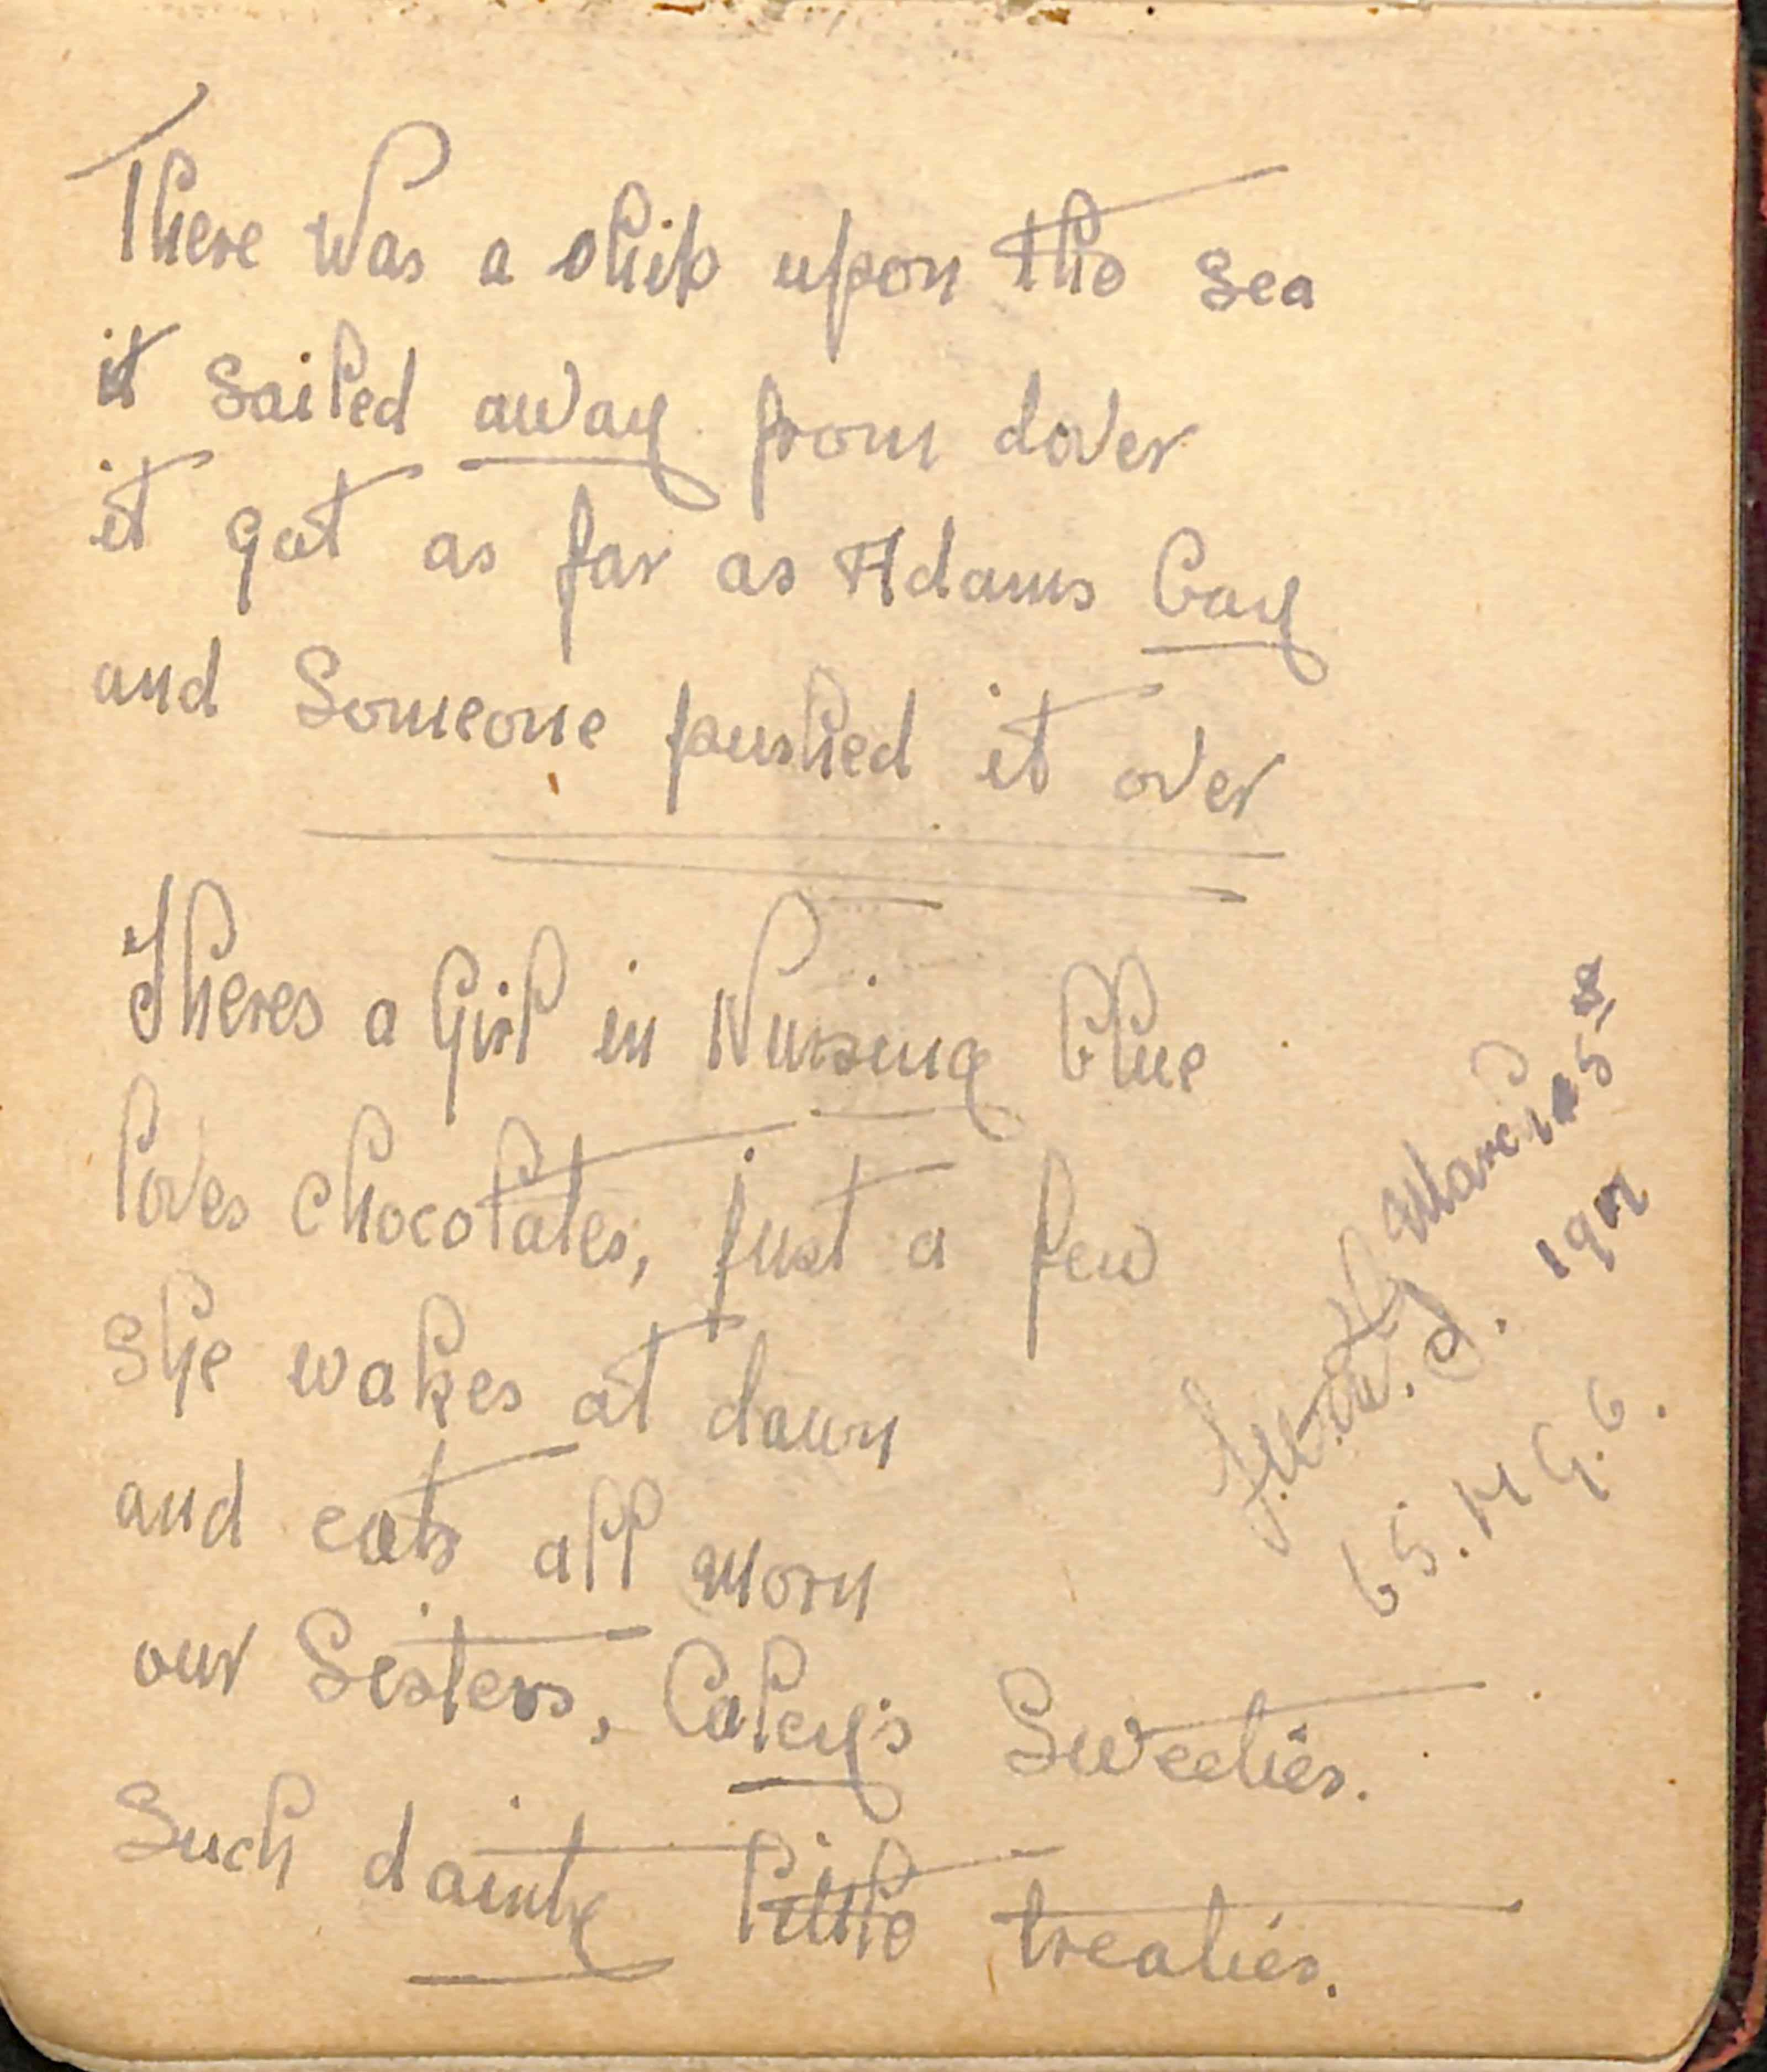 There was a ship upon the sea
it sailed away from dover
it got as far as Adams bay
and Someone pushed it over
Theres a Girl in Nursing blue
loves chocolates, just a few
She wakes at dawn
and eats all morn
our Sisters, Caley's Sweeties.
Such dainty little treaties.
March 5th
65. M G. C.